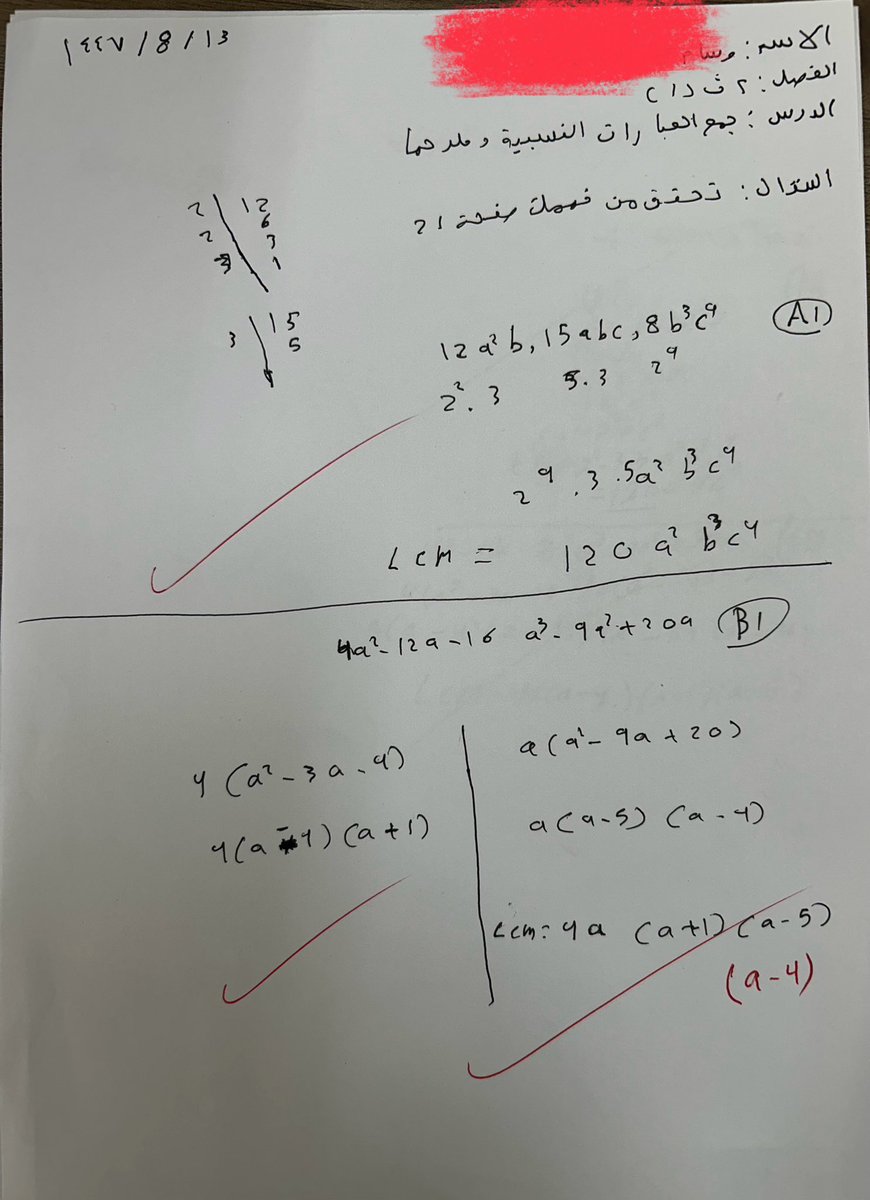 ١٤٤٧ / 8 / ١٣
الاسم : وسام
الفصل : ٢ ث د ١ C
الدرس : جمع العبارات النسبية وطرحها
السؤال : تحقق من فهمك صفحة 21
2 | 12
2 | 6
3 | 3
1
3 | 15
5
A1
12 a² b , 15 abc , 8 b³ c⁴
2² . 3 5 . 3 2⁹
2⁹ . 3 . 5 a² b³ c⁴
LCM = 120 a² b³ c⁴
B1
4a² - 12a - 16 a³ - 9a² + 20a
4 (a² - 3a - 4)
4 (a - 4) (a + 1)
a (a² - 9a + 20)
a (a - 5) (a - 4)
Lcm = 4a (a+1) (a-5)
(a-4)